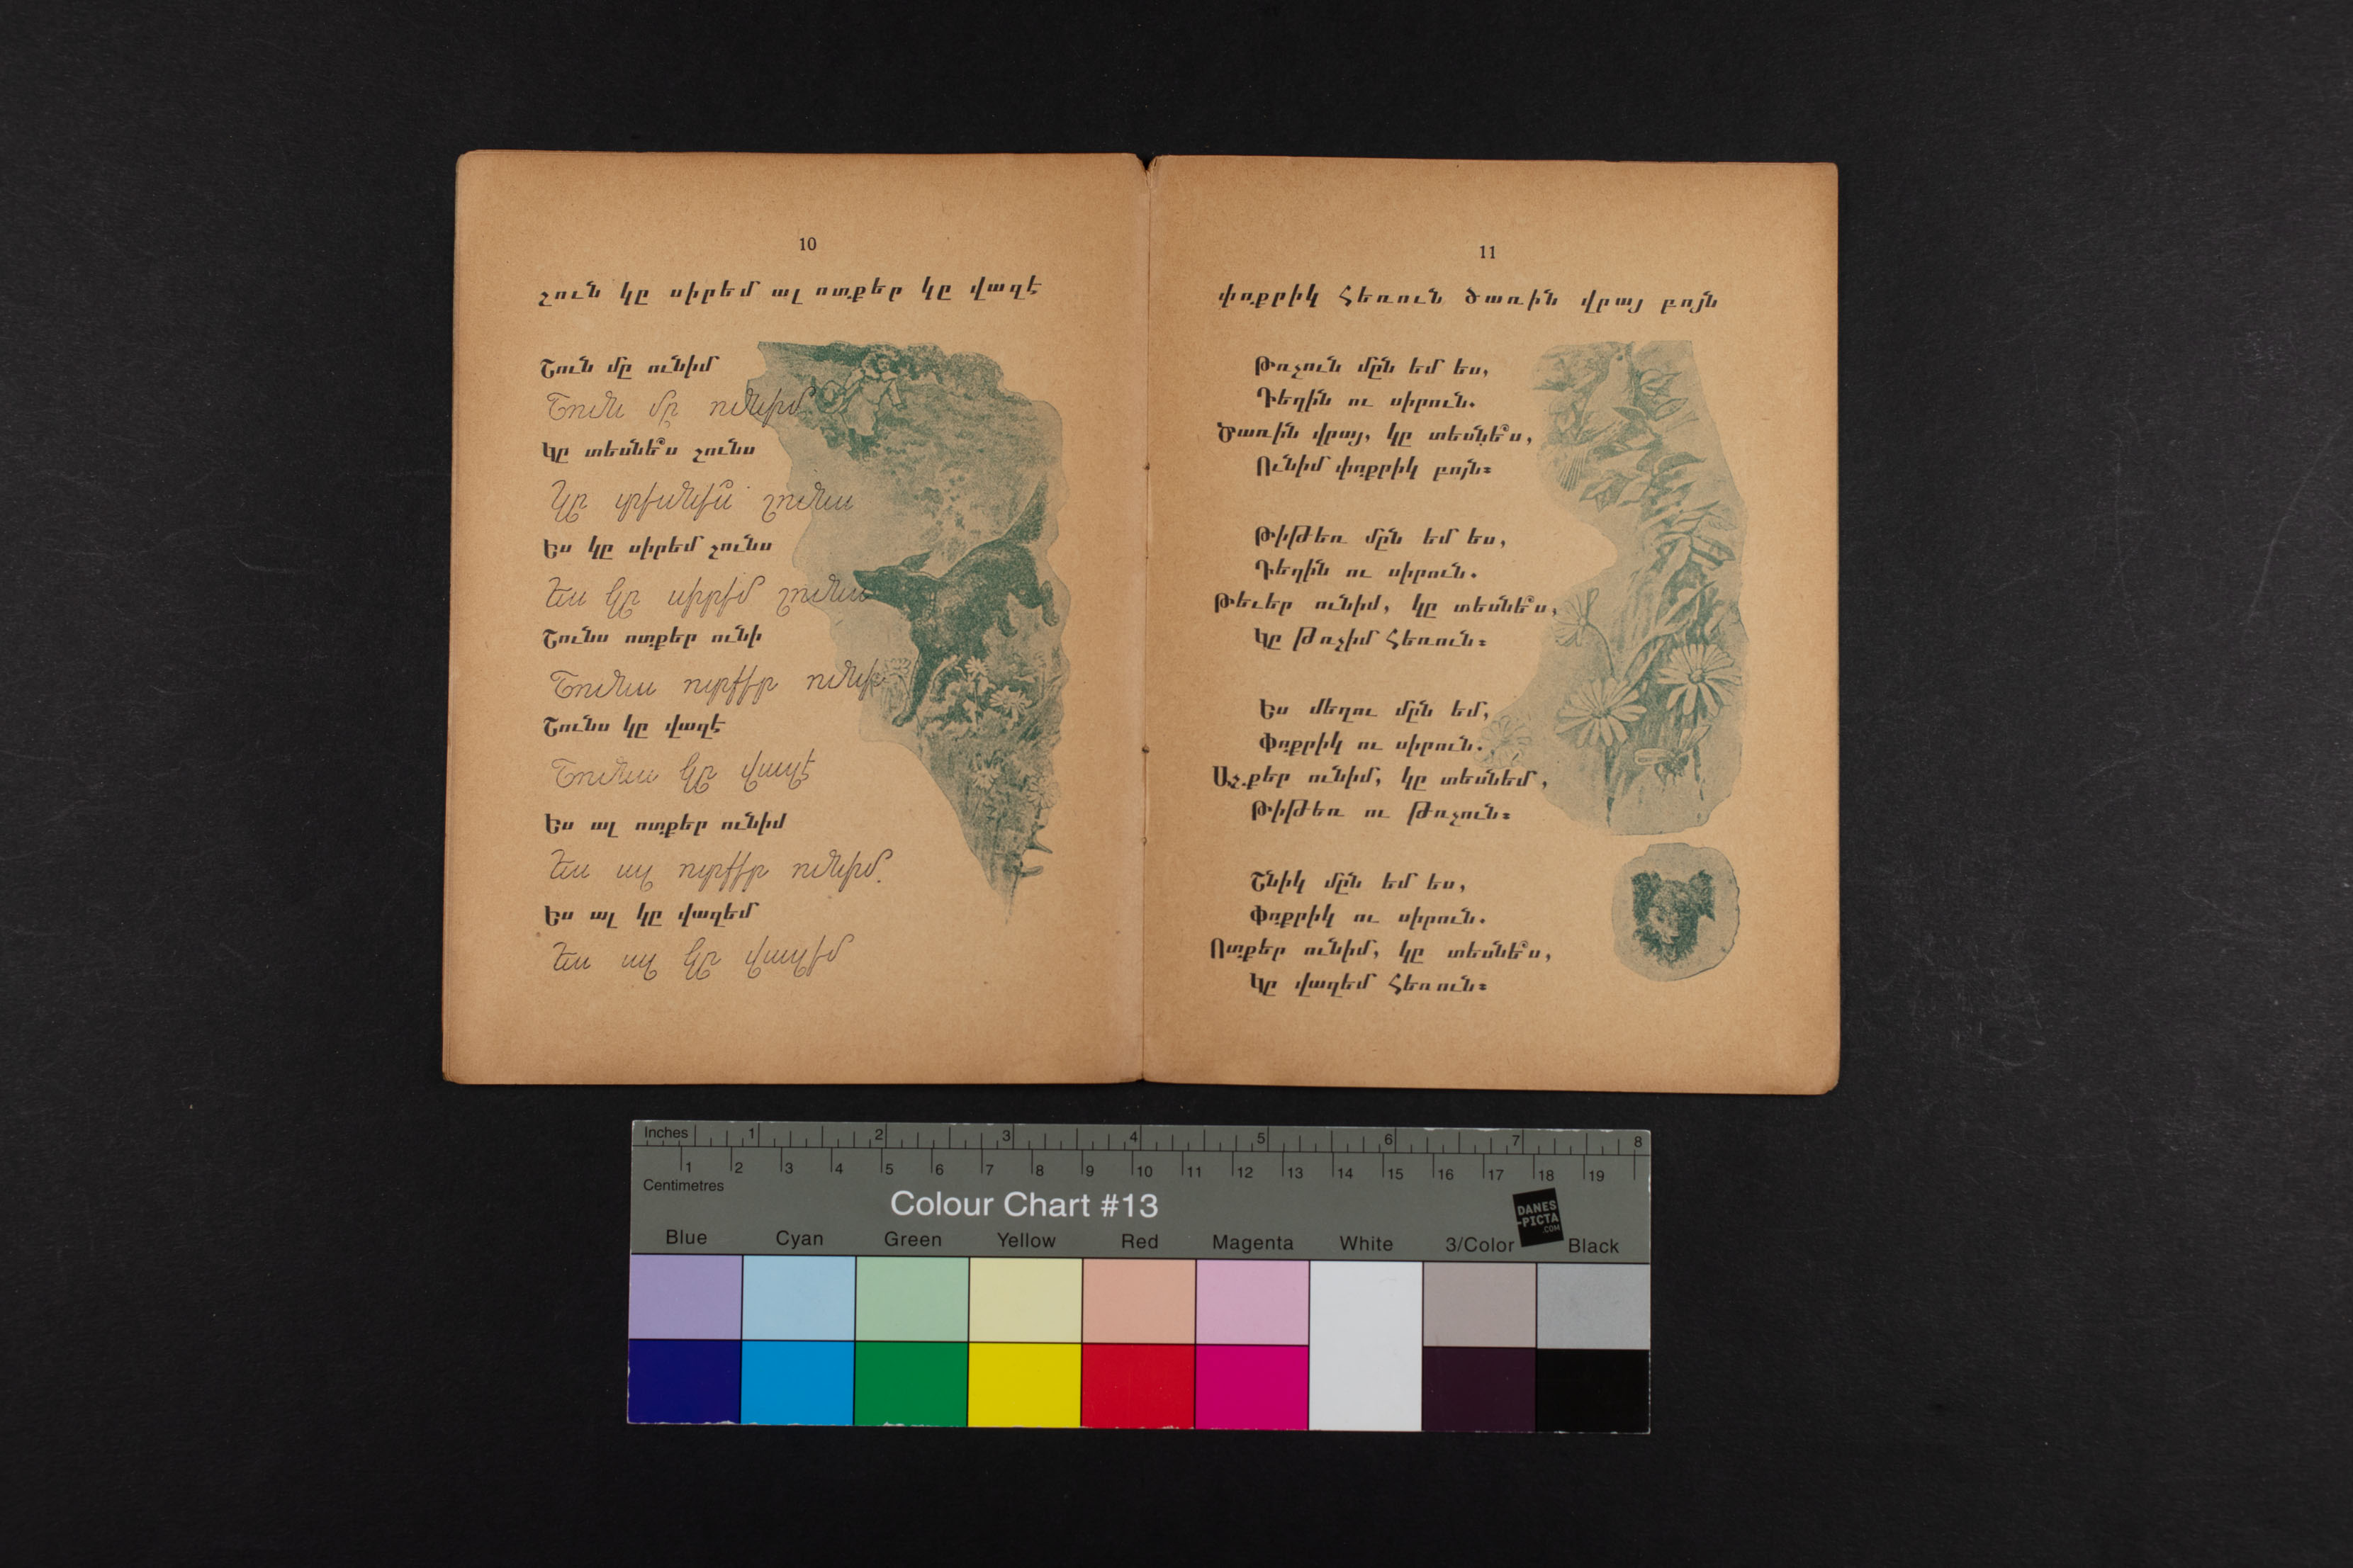 10
շուն կը սիրեմ ալ ոտքեր կը վազէ
Շուն մը ունիմ
Շուն մը ունիմ
Կը տեսնե՞ս շունս
Կը տեսնե՞ս շունս
Ես կը սիրեմ շունս
Ես կը սիրեմ շունս
Շունս ոտքեր ունի
Շունս ոտքեր ունի
Շունս կը վազէ
Շունս կը վազէ
Ես ալ ոտքեր ունիմ
Ես ալ ոտքեր ունիմ
Ես ալ կը վազեմ
Ես ալ կը վազեմ
11
փոքրիկ հեռուն ծառին վրայ բոյն
Թռչուն մըն եմ ես,
Դեղին ու սիրուն.
Ծառին վրայ, կը տեսնե՞ս,
Ունիմ փոքրիկ բոյն։
Թիթեռ մըն եմ ես,
Դեղին ու սիրուն.
Թեւեր ունիմ, կը տեսնե՞ս,
Կը թռչիմ հեռուն։
Ես մեղու մըն եմ,
Փոքրիկ ու սիրուն.
Աչքեր ունիմ, կը տեսնեմ,
Թիթեռ ու թռչուն։
Շնիկ մըն եմ ես,
Փոքրիկ ու սիրուն.
Ոտքեր ունիմ, կը տեսնե՞ս,
Կը վազեմ հեռուն։
Inches 1 2 3 4 5 6 7 8
1 2 3 4 5 6 7 8 9 10 11 12 13 14 15 16 17 18 19
Centimetres
Colour Chart #13
DANES
-PICTA
.COM
Blue Cyan Green Yellow Red Magenta White 3/Color Black